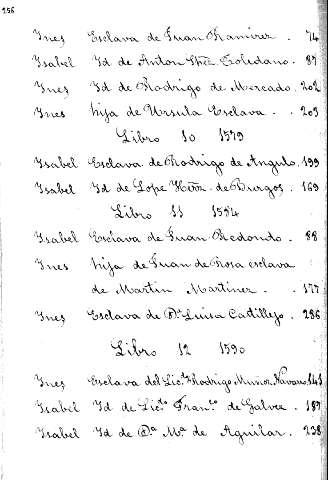 256
Ynes Esclava de Juan Ramirez . 74
Isabel Id de Anton Toledano . 87
Ynes Id de Rodrigo de Mercado . 202
Ynes hija de Ursula Esclava . . 203
Libro 10 1579
Isabel Esclava de Rodrigo de Angulo . 199
Isabel Id de Lope de Burgos . 169
Libro 11 1584
Isabel Esclava de Juan Redondo . 88
Ynes hija de Juan de Rosa esclava
de Martin Martinez . . 177
Ynes Esclava de Dª Luisa Castillejo . 286
Libro 12 1590
Ynes Esclava del Licdo Rodrigo Muñoz Navarro 141
Isabel Id de Licdo Franco de Galvez 189
Isabel Id de Dª Mª de Aguilar . 238